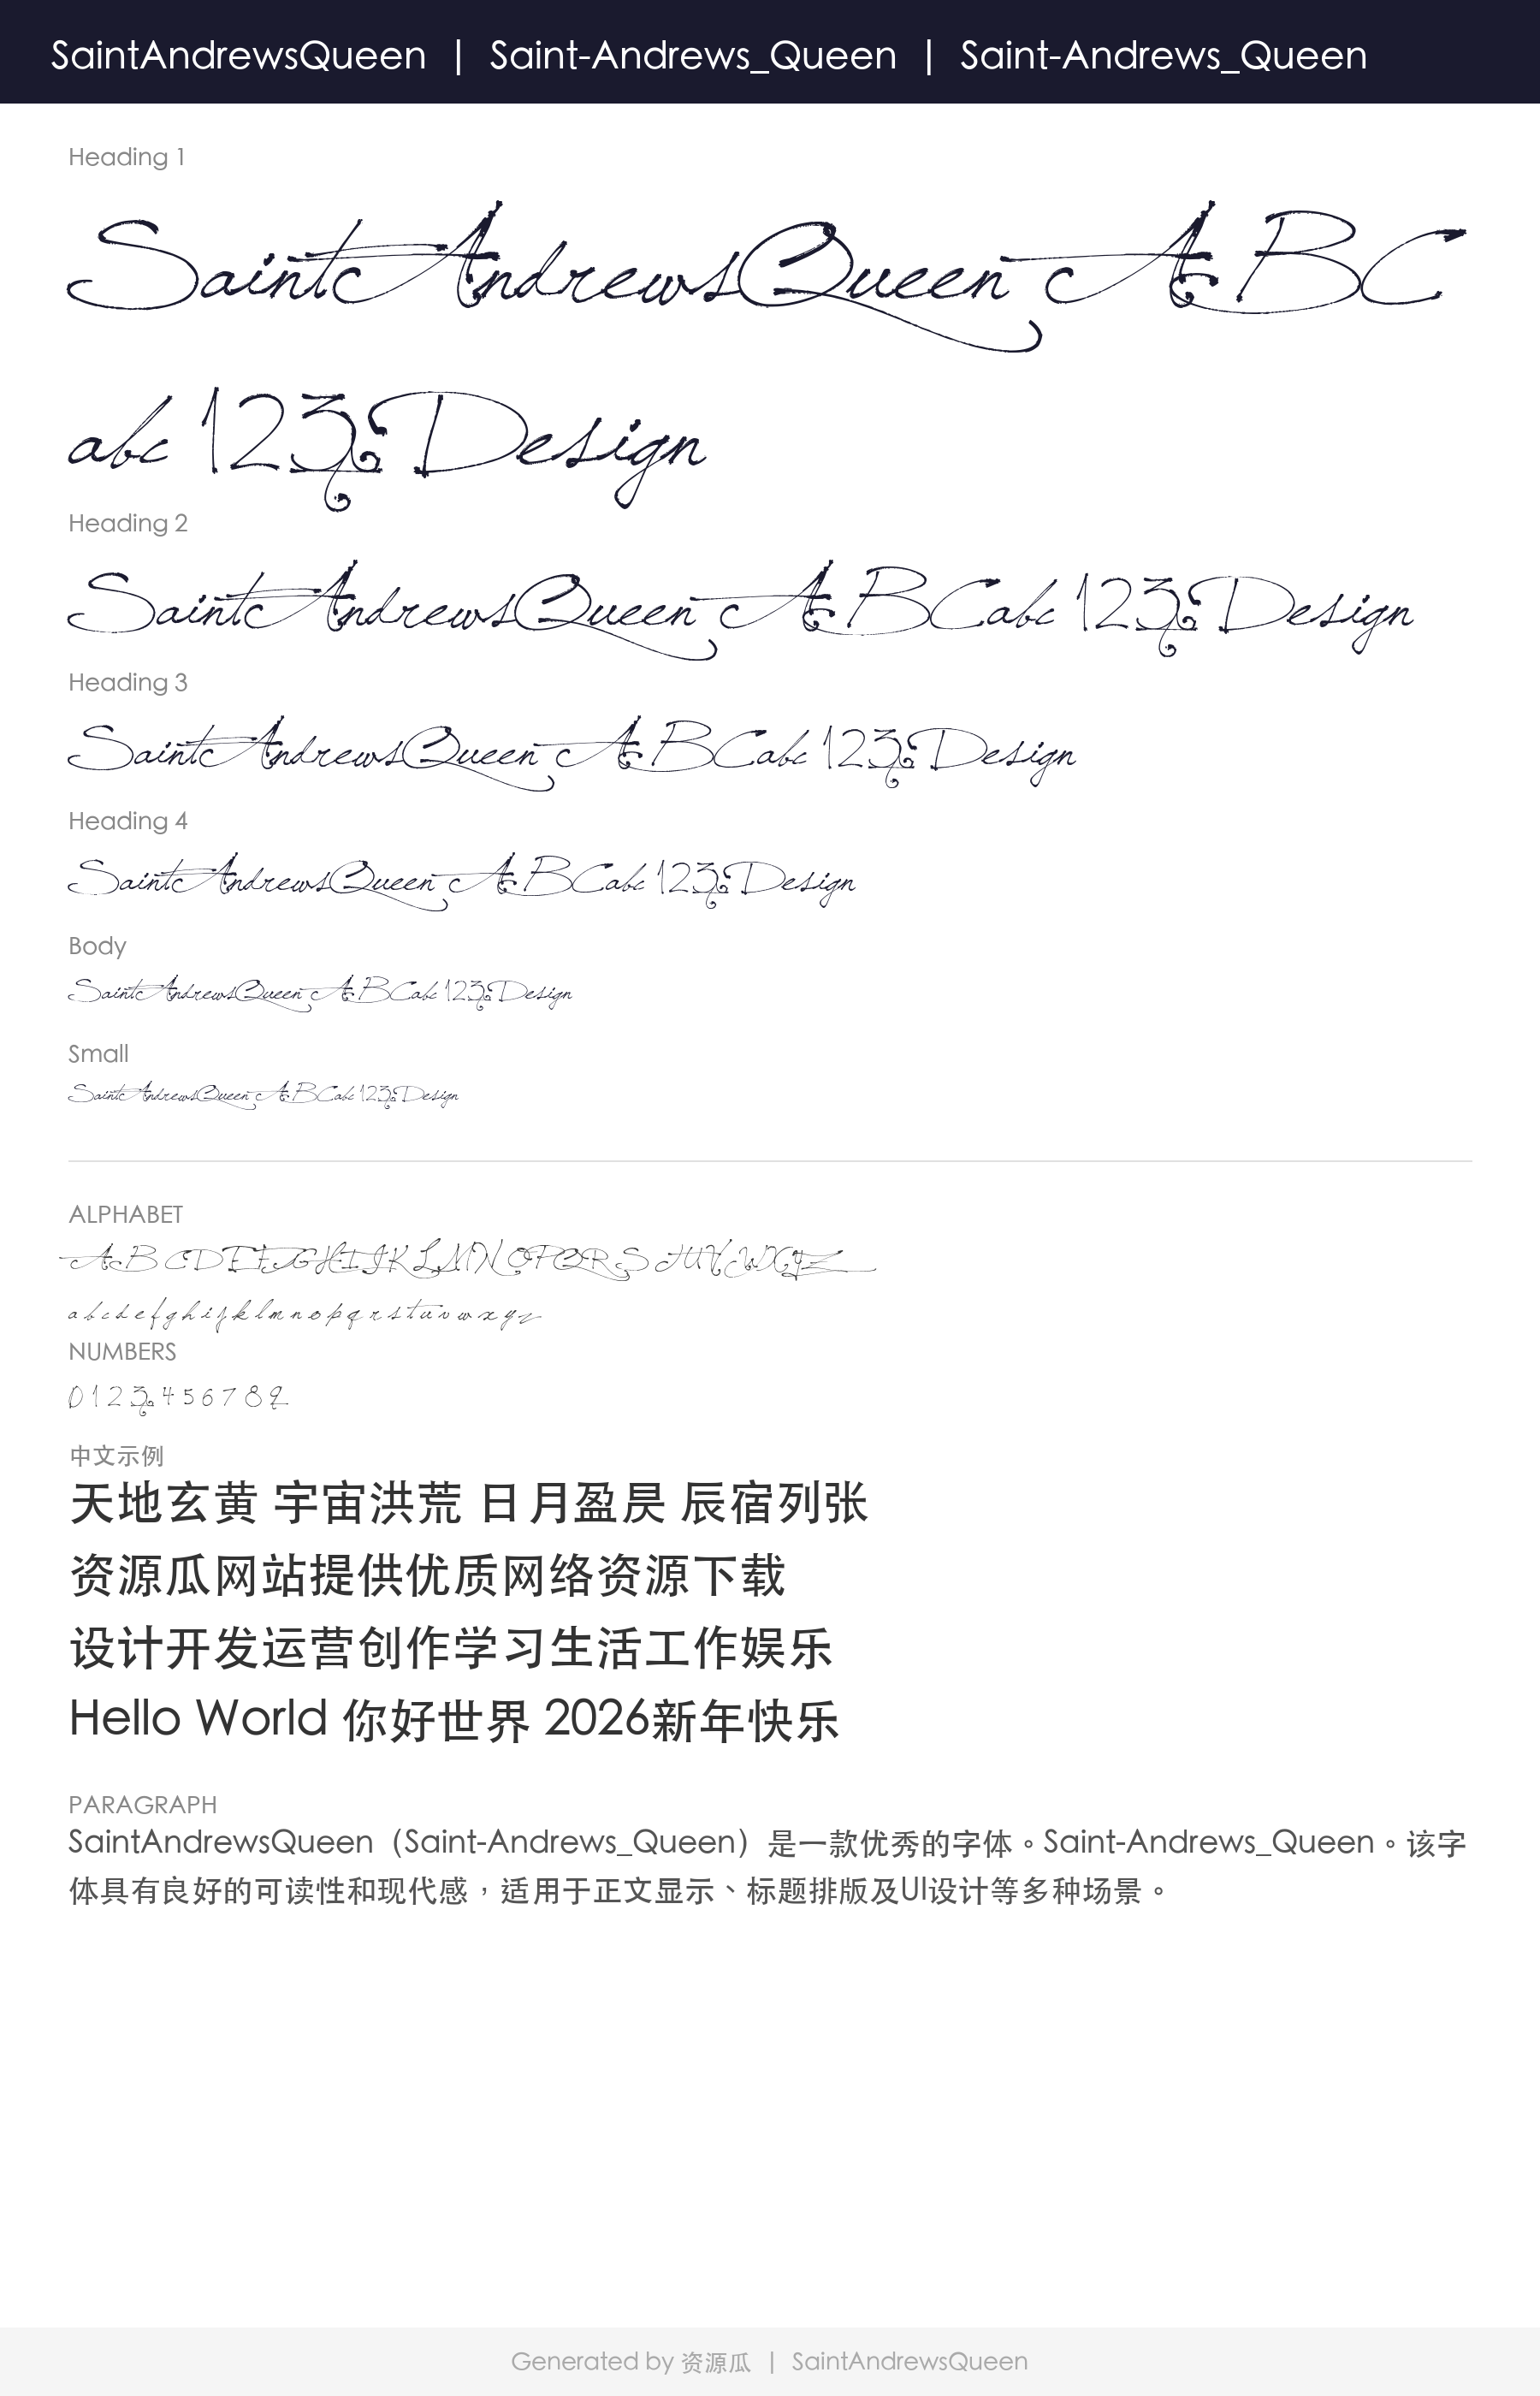 SaintAndrewsQueen | Saint-Andrews_Queen | Saint-Andrews_Queen
Heading 1
SaintAndrewsQueen ABC
abc 123 Design
Heading 2
SaintAndrewsQueen ABCabc 123 Design
Heading 3
SaintAndrewsQueen ABCabc 123 Design
Heading 4
SaintAndrewsQueen ABCabc 123 Design
Body
SaintAndrewsQueen ABCabc 123 Design
Small
SaintAndrewsQueen ABCabc 123 Design
ALPHABET
A B C D E F G H I J K L M N O P Q R S T U V W X Y Z
a b c d e f g h i j k l m n o p q r s t u v w x y z
NUMBERS
0 1 2 3 4 5 6 7 8 9
中文示例
天地玄黄 宇宙洪荒 日月盈昃 辰宿列张
资源瓜网站提供优质网络资源下载
设计开发运营创作学习生活工作娱乐
Hello World 你好世界 2026新年快乐
PARAGRAPH
SaintAndrewsQueen（Saint-Andrews_Queen）是一款优秀的字体。Saint-Andrews_Queen。该字
体具有良好的可读性和现代感，适用于正文显示、标题排版及UI设计等多种场景。
Generated by 资源瓜 | SaintAndrewsQueen